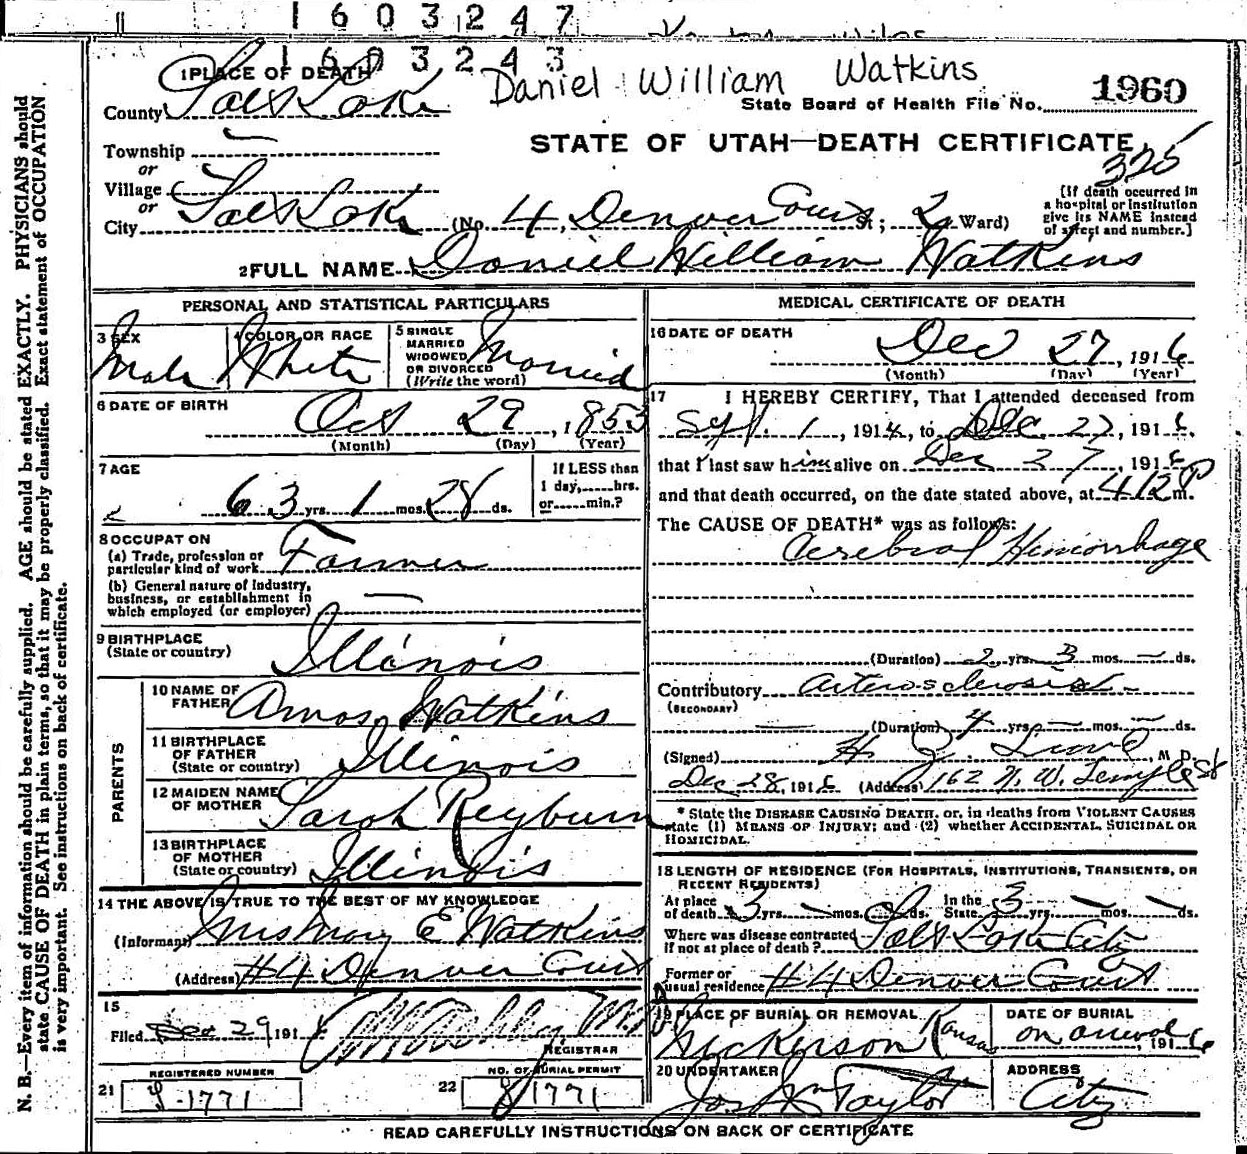 1603247
1603243
Daniel William Watkins
1 PLACE OF DEATH
County Salt Lake
State Board of Health File No. 1960
STATE OF UTAH—DEATH CERTIFICATE
325
Township —
or
Village
or
City Salt Lake (No. 4, Denver Court St; 2 Ward)
[If death occurred in
a hospital or institution
give its NAME instead
of street and number.]
2 FULL NAME Daniel William Watkins
PERSONAL AND STATISTICAL PARTICULARS
3 SEX Male
4 COLOR OR RACE White
5 SINGLE
MARRIED
WIDOWED
OR DIVORCED
(Write the word) Married
6 DATE OF BIRTH Oct 29, 1853
(Month) (Day) (Year)
7 AGE 63 yrs. 1 mos. 28 ds.
If LESS than
1 day,......hrs.
or......min.?
8 OCCUPATION
(a) Trade, profession or
particular kind of work Farmer
(b) General nature of Industry,
business, or establishment in
which employed (or employer) —
9 BIRTHPLACE
(State or country) Illinois
PARENTS
10 NAME OF
FATHER Amos Watkins
11 BIRTHPLACE
OF FATHER
(State or country) Illinois
12 MAIDEN NAME
OF MOTHER Sarah Reyburn
13 BIRTHPLACE
OF MOTHER
(State or country) Illinois
14 THE ABOVE IS TRUE TO THE BEST OF MY KNOWLEDGE
(Informant) Mrs Mary E Watkins
(Address) #4 Denver Court
15
Filed Dec 29, 1916
REGISTRAR
REGISTERED NUMBER
21
NO. OF BURIAL PERMIT
22
MEDICAL CERTIFICATE OF DEATH
16 DATE OF DEATH
Dec 27, 1916
(Month) (Day) (Year)
17 I HEREBY CERTIFY, That I attended deceased from
Sept. 1, 1914, to Dec. 27, 1916,
that I last saw him alive on Dec 27, 1916
and that death occurred, on the date stated above, at 4 12 P m.
The CAUSE OF DEATH* was as follows:
Cerebral Hemorrhage
(Duration) 2 yrs. 3 mos. — ds.
Contributory Arterosclerosis
(SECONDARY)
— (Duration) 4 yrs. — mos. — ds.
(Signed) M. D.
Dec 28, 1916 (Address) 162 N. W. Temple St
* State the DISEASE CAUSING DEATH, or, in deaths from VIOLENT CAUSES
state (1) MEANS OF INJURY; and (2) whether ACCIDENTAL, SUICIDAL OR
HOMICIDAL.
18 LENGTH OF RESIDENCE (FOR HOSPITALS, INSTITUTIONS, TRANSIENTS, OR
RECENT RESIDENTS)
At place
of death 3 yrs. — mos. ds. In the
State 3 yrs. — mos. — ds.
Where was disease contracted
if not at place of death? Salt Lake City
Former or
usual residence #4 Denver Court
19 PLACE OF BURIAL OR REMOVAL
Nickerson Kansas
DATE OF BURIAL
on arrival, 1916
20 UNDERTAKER
Jos Wm Taylor
ADDRESS
City
READ CAREFULLY INSTRUCTIONS ON BACK OF CERTIFICATE
N. B.—Every item of information should be carefully supplied. AGE should be stated EXACTLY. PHYSICIANS should
state CAUSE OF DEATH in plain terms, so that it may be properly classified. Exact statement of OCCUPATION
is very important. See instructions on back of certificate.